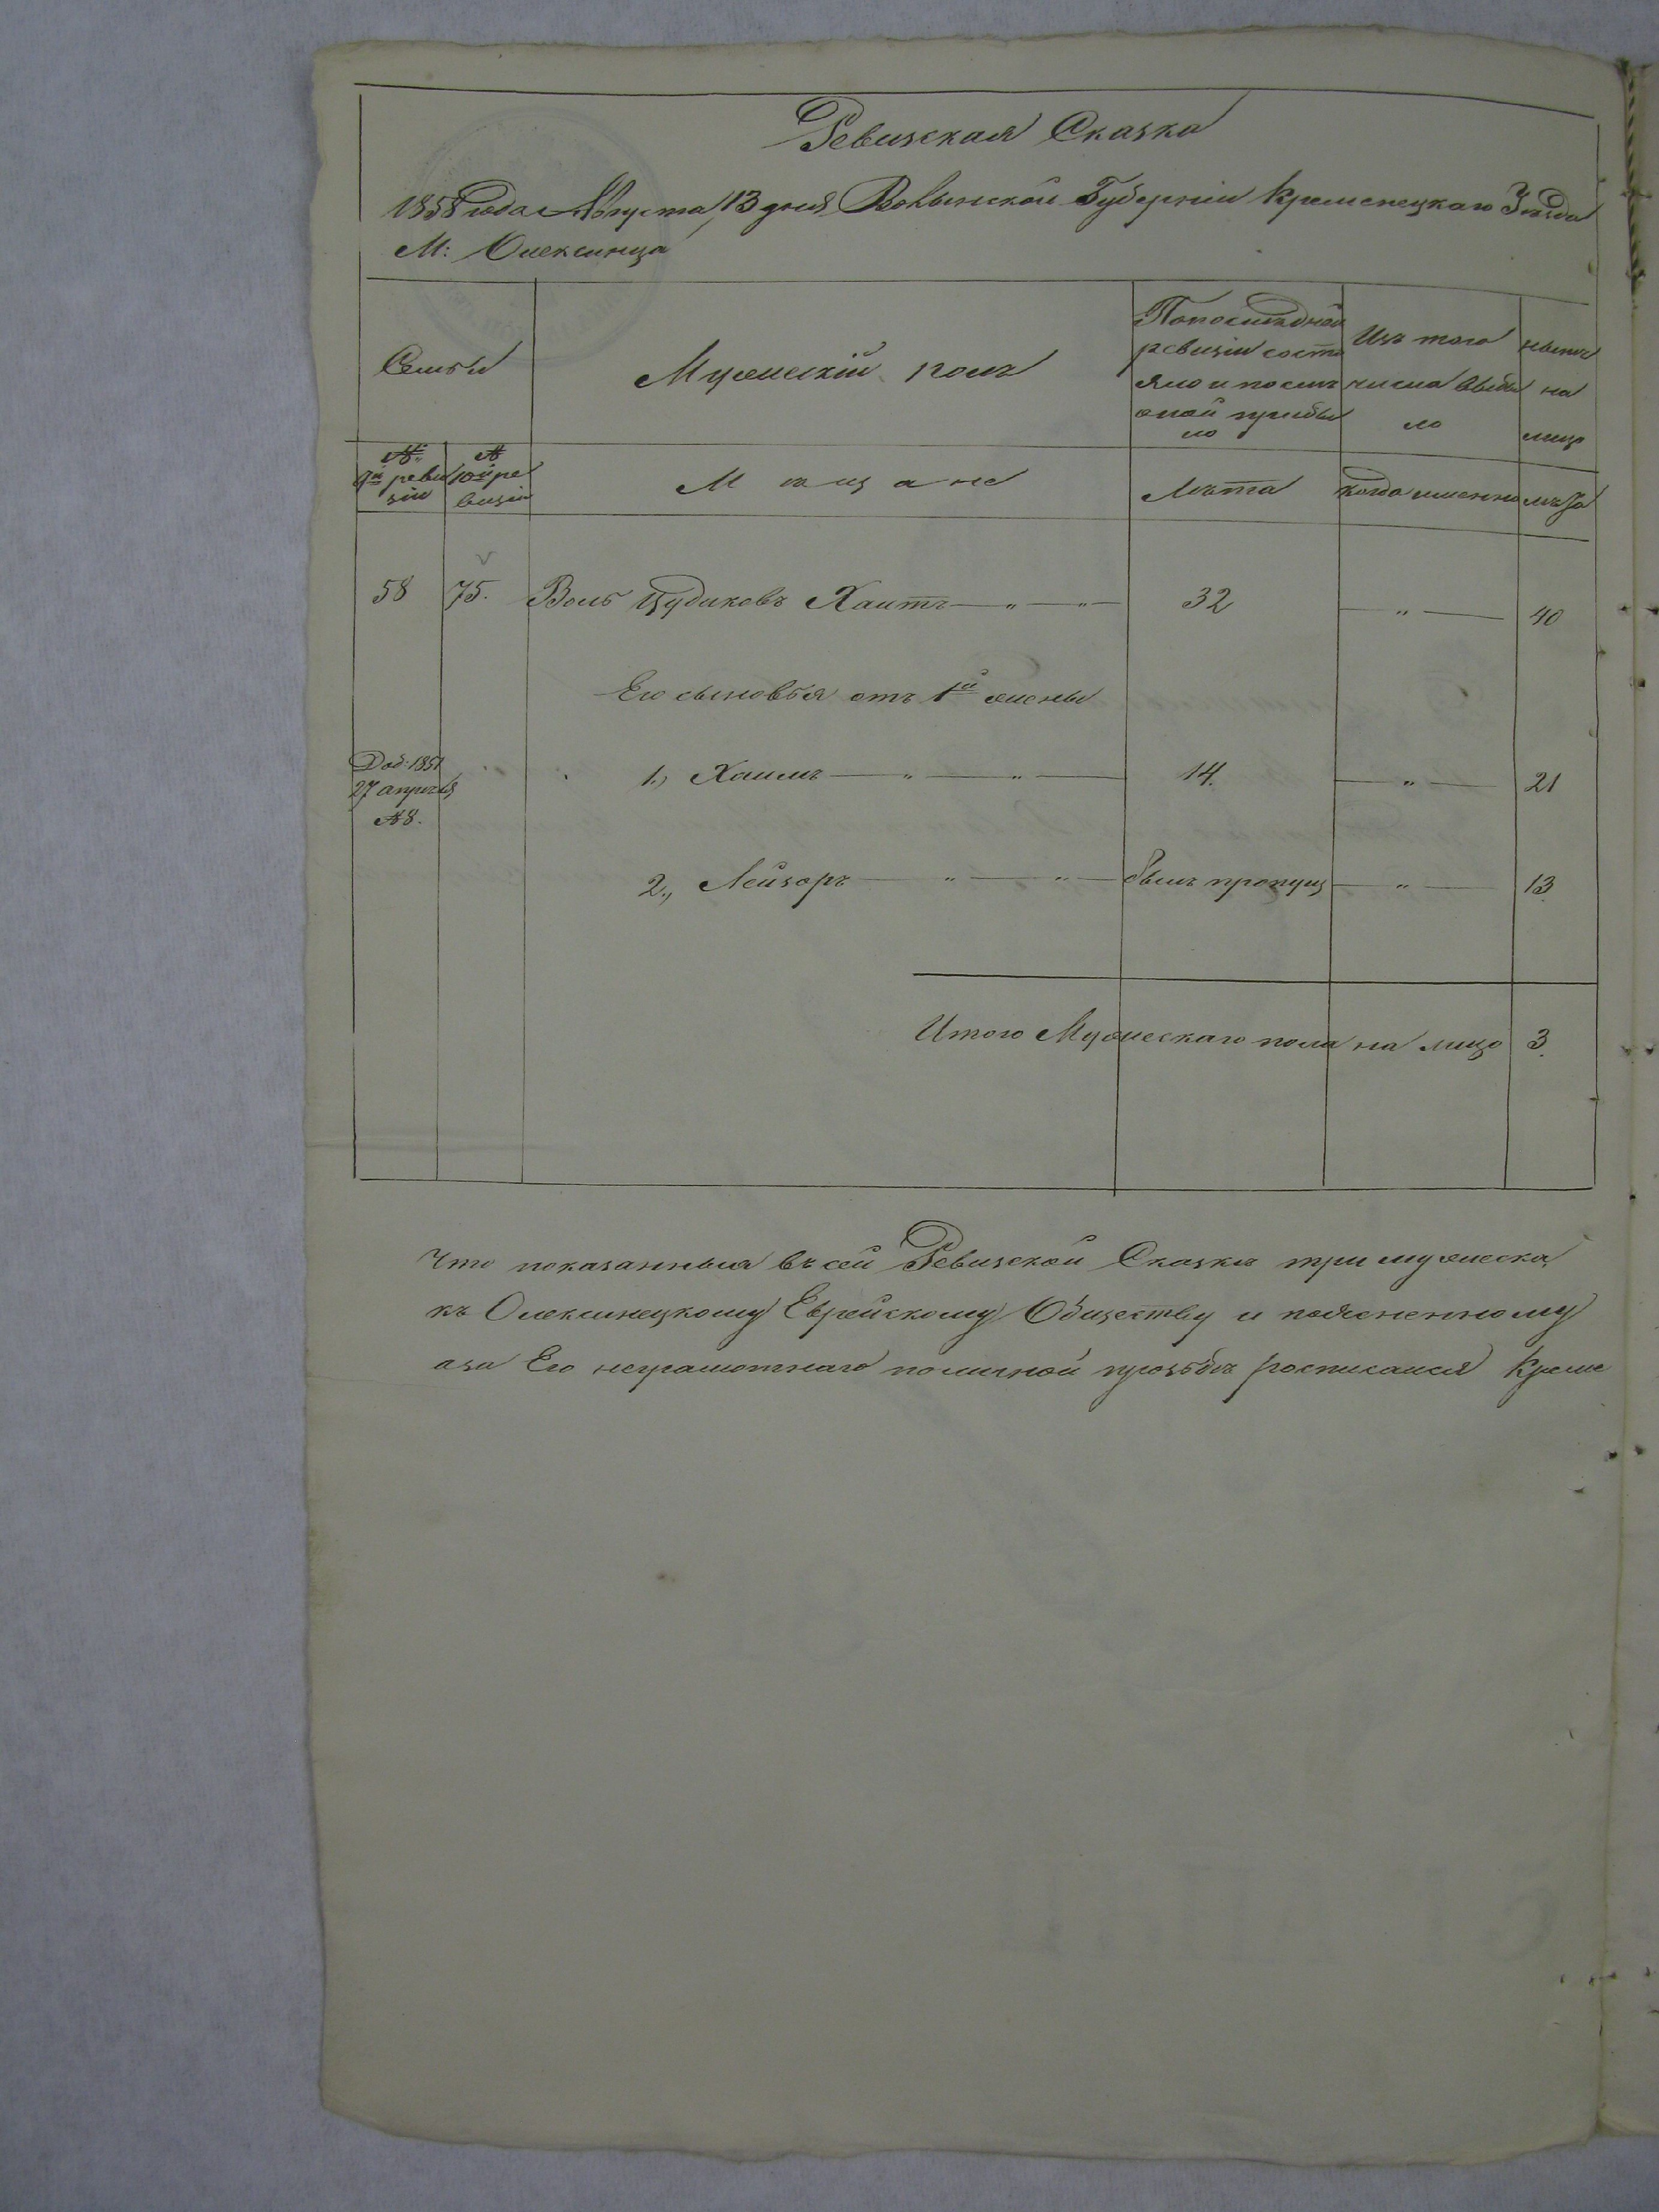 Ревизская Сказка
1858 года Августа 13 дня Волынской Губерніи Кременецкаго Уѣзда
М: Олексинца
Семьи
Мужескій полъ
По послѣдней
ревизіи состо
яло и послѣ
оной прибы
ло
Изъ того
числа выбы
ло
нынѣ
на
лицо
№
9й реви
зіи
№
10й ре
визіи
Мѣщане
Лѣта
когда именно
лѣта
58
75.
Воль Цудиковъ Хаитъ — „ — „ —
32
— „ —
40
Его сыновья отъ 1й жены
Доб: 1851
27 апрѣля
№ 8.
1., Хаимъ — „ — „ —
14.
— „ —
21
2., Лейзоръ — „ — „ —
былъ пропущ
— „ —
13.
Итого Мужескаго пола на лицо
3.
Что показанныя въ сей Ревизской Сказкѣ три мужеска
къ Олексинецкому Еврейскому Обществу и поясненному
аза Его неграмотнаго по личной прозьбѣ росписался Креме